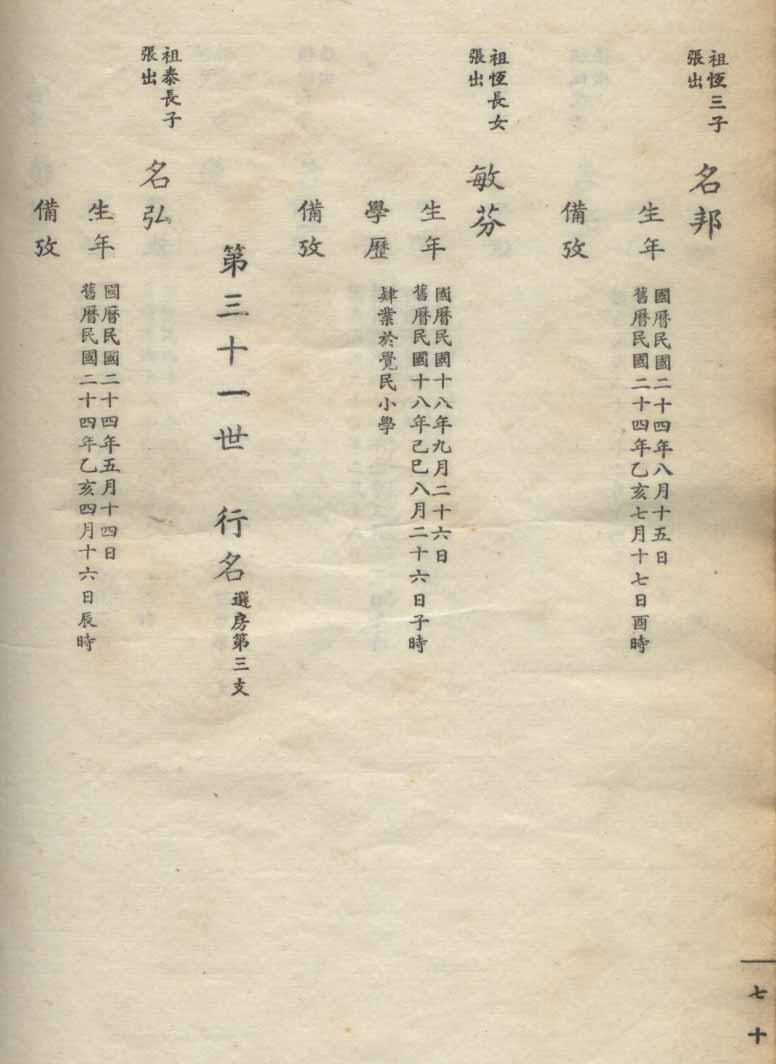 祖恆三子
張出
名邦
生年
國曆民國二十四年八月十五日
舊曆民國二十四年乙亥七月十七日酉時
備攷
祖恆長女
張出
敏芬
生年
國曆民國十八年九月二十六日
舊曆民國十八年己巳八月二十六日子時
學歷
肄業於覺民小學
備攷
第三十一世 行名 選房第三支
祖泰長子
張出
名弘
生年
國曆民國二十四年五月十四日
舊曆民國二十四年乙亥四月十六日辰時
備攷
七十